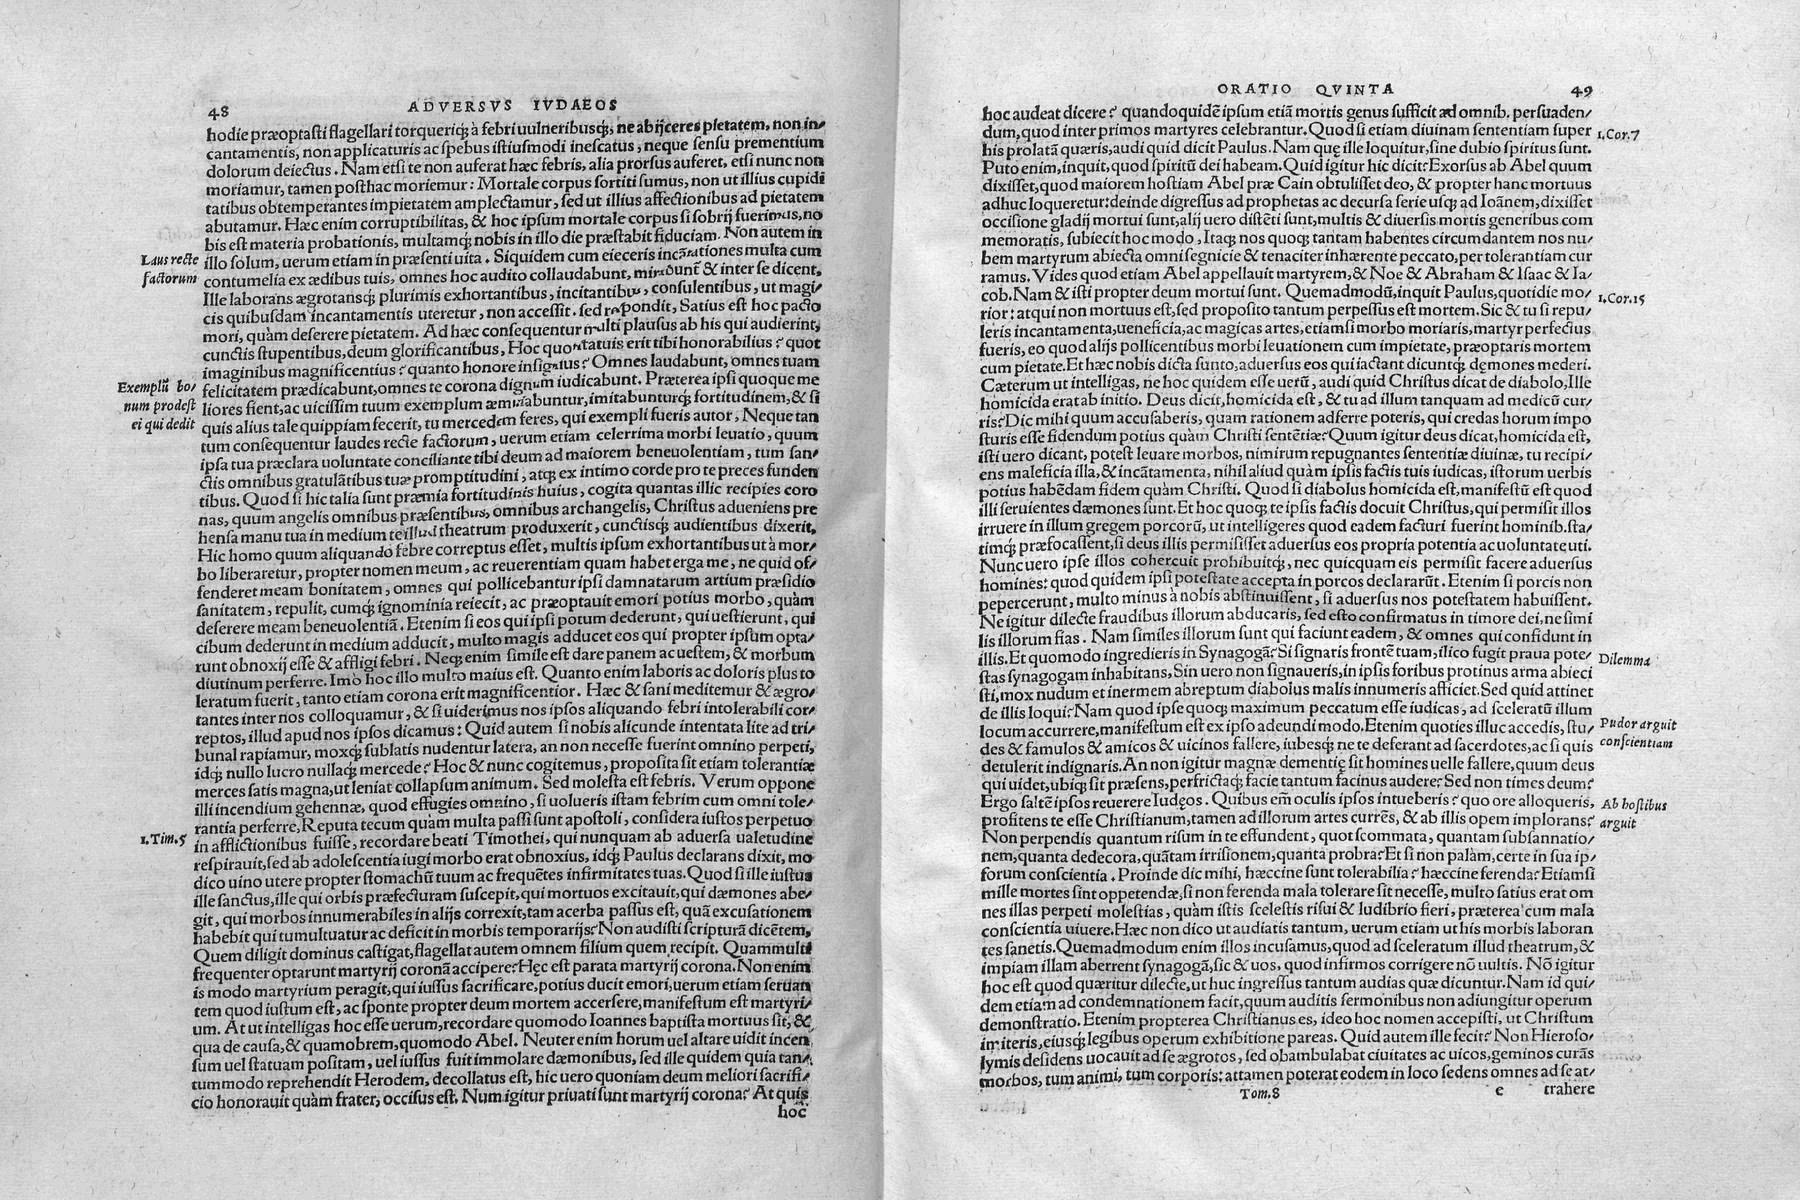 48
ADVERSVS IVDAEOS
hodie præoptasti flagellari torqueriq́; à febri uulneribusq́;, ne abijceres pietatem, non in/
cantamentis, non applicaturis ac spebus istiusmodi inescatus, neque sensu prementium
dolorum deiectus. Nam etsi te non auferat hæc febris, alia prorsus auferet, etsi nunc non
moriamur, tamen posthac moriemur: Mortale corpus sortiti sumus, non ut illius cupidi
tatibus obtemperantes impietatem amplectamur, sed ut illius affectionibus ad pietatem
abutamur. Hæc enim corruptibilitas, & hoc ipsum mortale corpus si sobrij fuerimus, no
bis est materia probationis, multamq́; nobis in illo die præstabit fiduciam. Non autem in
Laus recte
illo solum, uerum etiam in præsenti uita. Siquidem cum eieceris incātationes multa cum
factorum
contumelia ex ædibus tuis, omnes hoc audito collaudabunt, mirabunt̄ & inter se dicent,
Ille laborans ægrotansq́; plurimis exhortantibus, incitantibus, consulentibus, ut magi/
cis quibusdam incantamentis uteretur, non accessit. sed respondit, Satius est hoc pacto
mori, quàm deserere pietatem. Ad hæc consequentur multi plausus ab his qui audierint,
cunctis stupentibus, deum glorificantibus, Hoc quot statuis erit tibi honorabilius? quot
imaginibus magnificentius? quanto honore insignius? Omnes laudabunt, omnes tuam
Exemplū bo/
felicitatem prædicabunt, omnes te corona dignum iudicabunt. Præterea ipsi quoque me
num prodest
liores fient, ac uicissim tuum exemplum æmulabuntur, imitabunturq́; fortitudinem, & si
ei qui dedit
quis alius tale quippiam fecerit, tu mercedem feres, qui exempli fueris autor, Neque tan
tum consequentur laudes recte factorum, uerum etiam celerrima morbi leuatio, quum
ipsa tua præclara uoluntate conciliante tibi deum ad maiorem beneuolentiam, tum san/
ctis omnibus gratulātibus tuæ promptitudini, atq́; ex intimo corde pro te preces funden
tibus. Quod si hic talia sunt præmia fortitudinis huius, cogita quantas illic recipies coro
nas, quum angelis omnibus præsentibus, omnibus archangelis, Christus adueniens pre
hensa manu tua in medium te illud theatrum produxerit, cunctisq́; audientibus dixerit,
Hic homo quum aliquando febre correptus esset, multis ipsum exhortantibus ut à mor/
bo liberaretur, propter nomen meum, ac reuerentiam quam habet erga me, ne quid of/
fenderet meam bonitatem, omnes qui pollicebantur ipsi damnatarum artium præsidio
sanitatem, repulit, cumq́; ignominia reiecit, ac præoptauit emori potius morbo, quàm
deserere meam beneuolentiā. Etenim si eos qui ipsi potum dederunt, qui uestierunt, qui
cibum dederunt in medium adducit, multo magis adducet eos qui propter ipsum opta/
runt obnoxij esse & affligi febri. Neq́; enim simile est dare panem ac uestem, & morbum
diutinum perferre. Imò hoc illo multo maius est. Quanto enim laboris ac doloris plus to
leratum fuerit, tanto etiam corona erit magnificentior. Hæc & sani meditemur & ægro/
tantes inter nos colloquamur, & si uiderimus nos ipsos aliquando febri intolerabili cor/
reptos, illud apud nos ipsos dicamus: Quid autem si nobis alicunde intentata lite ad tri/
bunal rapiamur, moxq́; sublatis nudentur latera, an non necesse fuerint omnino perpeti,
idq́; nullo lucro nullaq́; mercede? Hoc & nunc cogitemus, proposita sit etiam tolerantiæ
merces satis magna, ut leniat collapsum animum. Sed molesta est febris. Verum oppone
illi incendium gehennæ, quod effugies omnino, si uolueris istam febrim cum omni tole/
rantia perferre, Reputa tecum quàm multa passi sunt apostoli, considera iustos perpetuo
1.Tim.5
in afflictionibus fuisse, recordare beati Timothei, qui nunquam ab aduersa ualetudine
respirauit, sed ab adolescentia iugi morbo erat obnoxius, idq́; Paulus declarans dixit, mo
dico uino utere propter stomachū tuum ac frequētes infirmitates tuas. Quod si ille iustus
ille sanctus, ille qui orbis præfecturam suscepit, qui mortuos excitauit, qui dæmones abe/
git, qui morbos innumerabiles in alijs correxit, tam acerba passus est, quā excusationem
habebit qui tumultuatur ac deficit in morbis temporarijs? Non audisti scripturā dicētem,
Quem diligit dominus castigat, flagellat autem omnem filium quem recipit. Quam multi
frequenter optarunt martyrij coronā accipere? Hęc est parata martyrij corona. Non enim
is modo martyrium peragit, qui iussus sacrificare, potius ducit emori, uerum etiam seruan
tem quod iustum est, ac sponte propter deum mortem accersere, manifestum est martyri/
um. At ut intelligas hoc esse uerum, recordare quomodo Ioannes baptista mortuus sit, &
qua de causa, & quamobrem, quomodo Abel. Neuter enim horum uel altare uidit incen
sum uel statuam positam, uel iussus fuit immolare dæmonibus, sed ille quidem quia tan/
tummodo reprehendit Herodem, decollatus est, hic uero quoniam deum meliori sacrifi/
cio honorauit quàm frater, occisus est. Num igitur priuati sunt martyrij corona? At quis
hoc
ORATIO QVINTA
49
hoc audeat dicere? quandoquidē ipsum etiā mortis genus sufficit ad omnib. persuaden/
dum, quod inter primos martyres celebrantur. Quod si etiam diuinam sententiam super
1.Cor.7
his prolatā quæris, audi quid dicit Paulus. Nam quę ille loquitur, sine dubio spiritus sunt.
Puto enim, inquit, quod spiritū dei habeam. Quid igitur hic dicit? Exorsus ab Abel quum
dixisset, quod maiorem hostiam Abel præ Cain obtulisset deo, & propter hanc mortuus
adhuc loqueretur: deinde digressus ad prophetas ac decursa serie usq́; ad Ioānem, dixisset
occisione gladij mortui sunt, alij uero distēti sunt, multis & diuersis mortis generibus com
memoratis, subiecit hoc modo, Itaq́; nos quoq́; tantam habentes circumdantem nos nu/
bem martyrum abiecta omni segnicie & tenaciter inhærente peccato, per tolerantiam cur
ramus. Vides quod etiam Abel appellauit martyrem, & Noe & Abraham & Isaac & Ia/
cob. Nam & isti propter deum mortui sunt. Quemadmodū, inquit Paulus, quotidie mo/
1.Cor.15
rior: atqui non mortuus est, sed proposito tantum perpessus est mortem. Sic & tu si repu/
leris incantamenta, ueneficia, ac magicas artes, etiamsi morbo moriaris, martyr perfectus
fueris, eo quod alijs pollicentibus morbi leuationem cum impietate, præoptaris mortem
cum pietate. Et hæc nobis dicta sunto, aduersus eos qui iactant dicuntq́; dęmones mederi.
Cæterum ut intelligas, ne hoc quidem esse uerū, audi quid Christus dicat de diabolo, Ille
homicida erat ab initio. Deus dicit, homicida est, & tu ad illum tanquam ad medicū cur/
ris? Dic mihi quum accusaberis, quam rationem adferre poteris, qui credas horum impo
sturis esse fidendum potius quàm Christi sentētiæ? Quum igitur deus dicat, homicida est,
isti uero dicant, potest leuare morbos, nimirum repugnantes sententiæ diuinæ, tu recipi/
ens maleficia illa, & incātamenta, nihil aliud quàm ipsis factis tuis iudicas, istorum uerbis
potius habēdam fidem quàm Christi. Quod si diabolus homicida est, manifestū est quod
illi seruientes dæmones sunt. Et hoc quoq́; te ipsis factis docuit Christus, qui permisit illos
irruere in illum gregem porcorū, ut intelligeres quod eadem facturi fuerint hominib. sta/
timq́; præfocassent, si deus illis permisisset aduersus eos propria potentia ac uoluntate uti.
Nunc uero ipse illos cohercuit prohibuitq́;, nec quicquam eis permisit facere aduersus
homines: quod quidem ipsi potestate accepta in porcos declararūt. Etenim si porcis non
pepercerunt, multo minus à nobis abstinuissent, si aduersus nos potestatem habuissent.
Ne igitur dilecte fraudibus illorum abducaris, sed esto confirmatus in timore dei, ne simi
lis illorum fias. Nam similes illorum sunt qui faciunt eadem, & omnes qui confidunt in
illis. Et quomodo ingredieris in Synagogā? Si signaris frontē tuam, ilico fugit praua pote/
Dilemma
stas synagogam inhabitans, Sin uero non signaueris, in ipsis foribus protinus arma abieci
sti, mox nudum et inermem abreptum diabolus malis innumeris afficiet. Sed quid attinet
de illis loqui? Nam quod ipse quoq́; maximum peccatum esse iudicas, ad sceleratū illum
Pudor arguit
locum accurrere, manifestum est ex ipso adeundi modo. Etenim quoties illuc accedis, stu/
conscientiam
des & famulos & amicos & uicinos fallere, iubesq́; ne te deferant ad sacerdotes, ac si quis
detulerit indignaris. An non igitur magnæ dementię sit homines uelle fallere, quum deus
qui uidet, ubiq́; sit præsens, perfrictaq́; facie tantum facinus audere? Sed non times deum?
Ab hostibus
Ergo saltē ipsos reuerere Iudęos. Quibus em̄ oculis ipsos intueberis? quo ore alloqueris,
arguit
profitens te esse Christianum, tamen ad illorum artes currēs, & ab illis opem implorans?
Non perpendis quantum risum in te effundent, quot scommata, quantam subsannatio/
nem, quanta dedecora, quātam irrisionem, quanta probra? Et si non palàm, certe in sua ip/
sorum conscientia. Proinde dic mihi, hæccine sunt tolerabilia? hæccine ferenda? Etiamsi
mille mortes sint oppetendæ, si non ferenda mala tolerare sit necesse, multo satius erat om
nes illas perpeti molestias, quàm istis scelestis risui & ludibrio fieri, præterea cum mala
conscientia uiuere. Hæc non dico ut audiatis tantum, uerum etiam ut his morbis laboran
tes sanetis. Quemadmodum enim illos incusamus, quod ad sceleratum illud theatrum, &
impiam illam aberrent synagogā, sic & uos, quod infirmos corrigere nō uultis. Nō igitur
hoc est quod quæritur dilecte, ut huc ingressus tantum audias quæ dicuntur. Nam id qui/
dem etiam ad condemnationem facit, quum auditis sermonibus non adiungitur operum
demonstratio. Etenim propterea Christianus es, ideo hoc nomen accepisti, ut Christum
imiteris, eiusq́; legibus operum exhibitione pareas. Quid autem ille fecit? Non Hieroso/
lymis desidens uocauit ad se ægrotos, sed obambulabat ciuitates ac uicos, geminos curās
morbos, tum animi, tum corporis: attamen poterat eodem in loco sedens omnes ad se at/
Tom.8
e
trahere